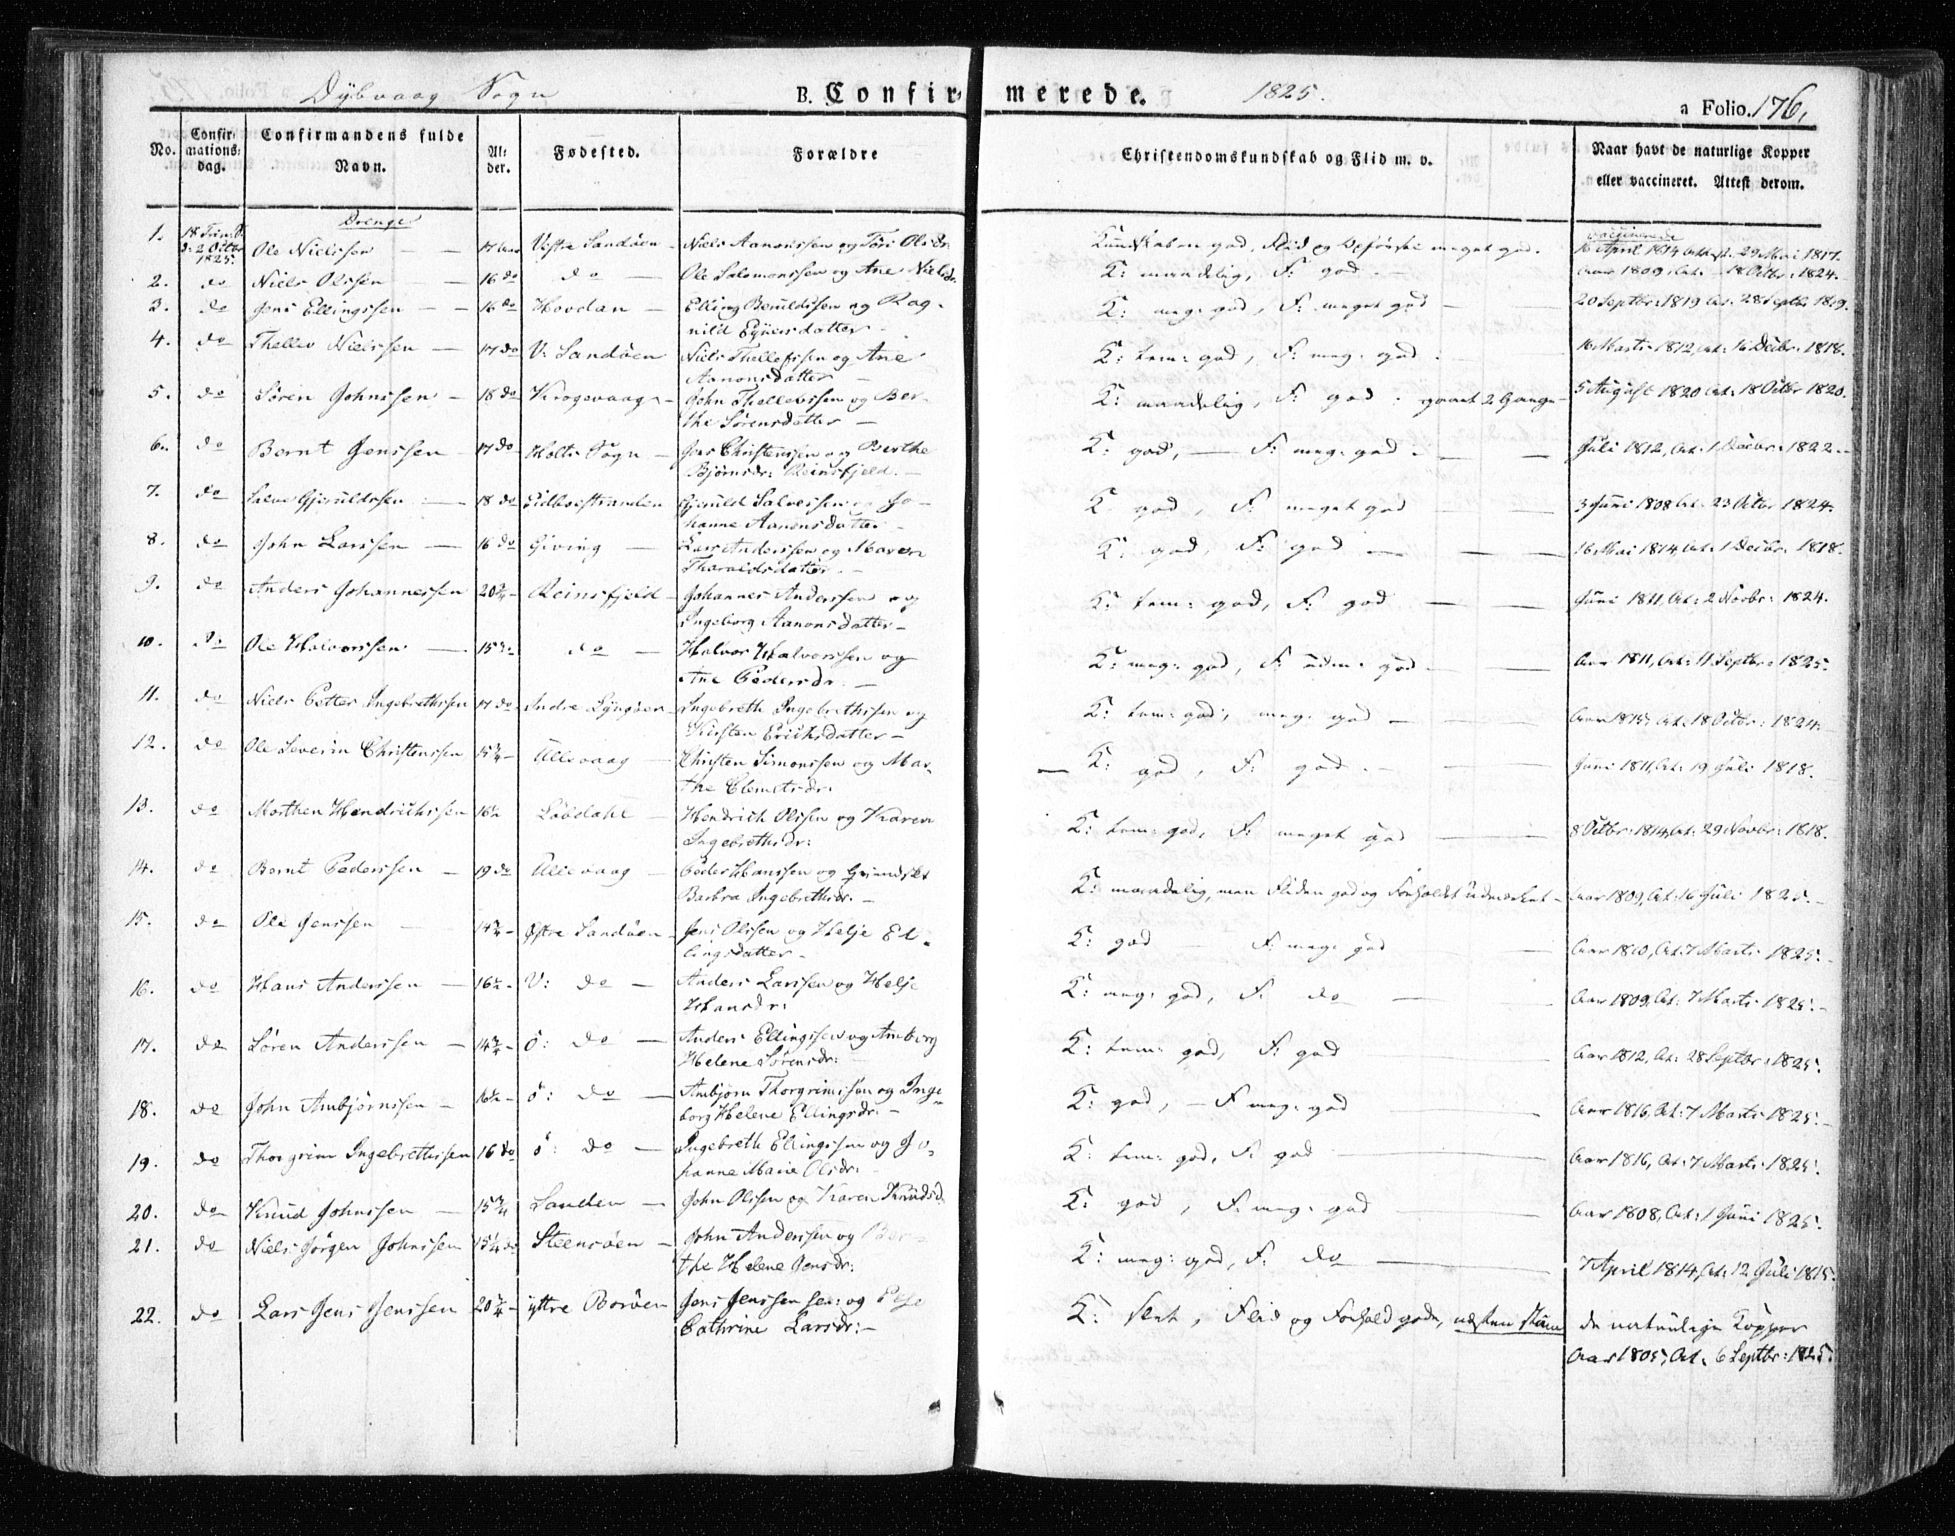 Dÿbvaag Sogn B. Confirmerede. 1825. a Folio. 176,
No. Confirmations: dag. Confirmandens fulde Navn. Alder. Fødested. Forældre Christendomskundskab og Flid m. v. Naar havt de naturlige Kopper eller vaccineret. Attest derom.
Drenge vaccinerede
1. 18 d: 2 Octbr 1825. Ole Nielssen 17 Vestre Sandöen Niels Aanonssen og Olsdr. Kundskaben god, Flid og meget god. 16 April 1814 29 Mai 1817.
2. do Niels Olssen 16 do do Ole Salomonssen og Ane Nielsdr. K: maadelig, F: god Aar 1809, At: 18 Octbr: 1824.
3. do Jens Ellingssen 16 do Hovdan Elling og Rag-
nild K: meg: god, F: meget god 20 Septbr: 1819 At: 28 Septbr 1819.
4. do Thellev Nielssen 17 do V: Sandöen Niels Thellefssen og Ane
Aanonsdatter K: tem: god, F: meg: god. 16 Marts 1812, At: 16 Decbr. 1818.
5. do Sören Johnssen 18 do Krogevaag John Thellevssen og Ber-
the Sörensdatter K: maadelig, F: god. 2 Gange 5 August 1820 At: 18 Octbr 1820.
6. do Bernt Jenssen 17 do Holts Sogn Jens Christenssen og Berthe
Björnsdr: Reinsfjeld. K: god, F: meg: god Juli 1812, At: 1 Decbr: 1822.
7. do Salve Gjeruldssen 18 do Gjeruld Salvessen og Jo-
hanne Aanonsdatter K: god, F: meget god 3 Juni 1808 At: 23 Octbr 1824.
8. do John Larssen 16 do Giving Lars Anderssen og Maren
Tharaldsdatter. K: god, F: god 16 Mai 1814 At: 1 Decbr: 1818.
9. do Anders Johannessen 20 Reinsfjeld Johannes Anderssen og
Ingeborg Aanonsdatter K: tem: god, F: god Juni 1811, At: 2 Novbr: 1824.
10. do Ole Halvorssen 15 do Halvor Halvorssen og
Ane Pedersdr: K: meg: god, F: udm: god Aar 1811, At: 11 Septbr: 1825.
11. do Niels Petter Ingebrethssen 17 do Indre Lÿngöer Ingebreth Ingebrethssen og
Kirsten Erichsdatter K: tem: god, meg: god Aar 1815, At: 18 Octbr: 1824.
12. do Ole Severin Christenssen 15 3/4 Allevaag Christen Simonssen og Mar-
the Clemetsdr: K: god, F: god. Juni 1811, At: 19 Juli 1818.
13. do Morthen Hendrichssen 16 1/2 Løvdahl Hendrich Olssen og Karen
Ingebrethsdr: K: tem: god, F: meget god 8 Octbr: 1814, At: 29 Novbr: 1818.
14. do Bernt Pederssen 19 do Allevaag Peder Hanssen og
Barbra Ingebrethsdr. K: maadelig, men Fliden god og Forholdet udmærket Aar 1809, At: 16 Juli 1825.
15. do Ole Jenssen Østre Sandöen Jens Olssen og Helje El-
lingsdatter K: god F: meg: god Aar 1810, At: 7 Marts 1825.
16. do Hans Anderssen 16 1/2 V: do Anders Larssen og Helje
Hansdr: K: meg: god, F: do Aar 1809, At: 7 Marts 1825.
17. do Sören Anderssen 14 3/4 Ö: do Anders Ellingssen og Amborg
Helene Sörensdr: K: tem: god, F: god Aar 1812, At: 28 Septbr: 1825.
18. do John Ambjörnssen 16 1/2 ö: do Ambjörn Thorgrimssen og Inge-
borg Helene Ellingsdr: K: god, F meg: god Aar 1816, At: 7 Marts 1825.
19. do Thorgrim Ingebrethssen 16 do ö: do Ingebreth Ellingssen og Jo-
hanne Marie Olsdr: K: tem: god, F: god Aar 1816, At: 7 Marts 1825.
20. do Knud Johnssen 15 3/4 Sanden John Olssen og Karen Knudsd. K: god, F: meg: god Aar 1808, At: 1 Juni 1825.
21. do Niels Jörgen Johnssen 15 1/4 Steensöen John Anderssen og Ber-
the Helene Jensdr: K: meg: god, F: do 7 April 1814, At: 12 Juli 1815.
22. do Lars Jens Jenssen 20 3/4 ÿttre Borøen Jens Jenssen sen: og Else
Cathrine Larsdr: K: slet, Flid og Forhold gode, næsten de naturlige Kopper
Aar 1805, At. 6 Septbr: 1825.